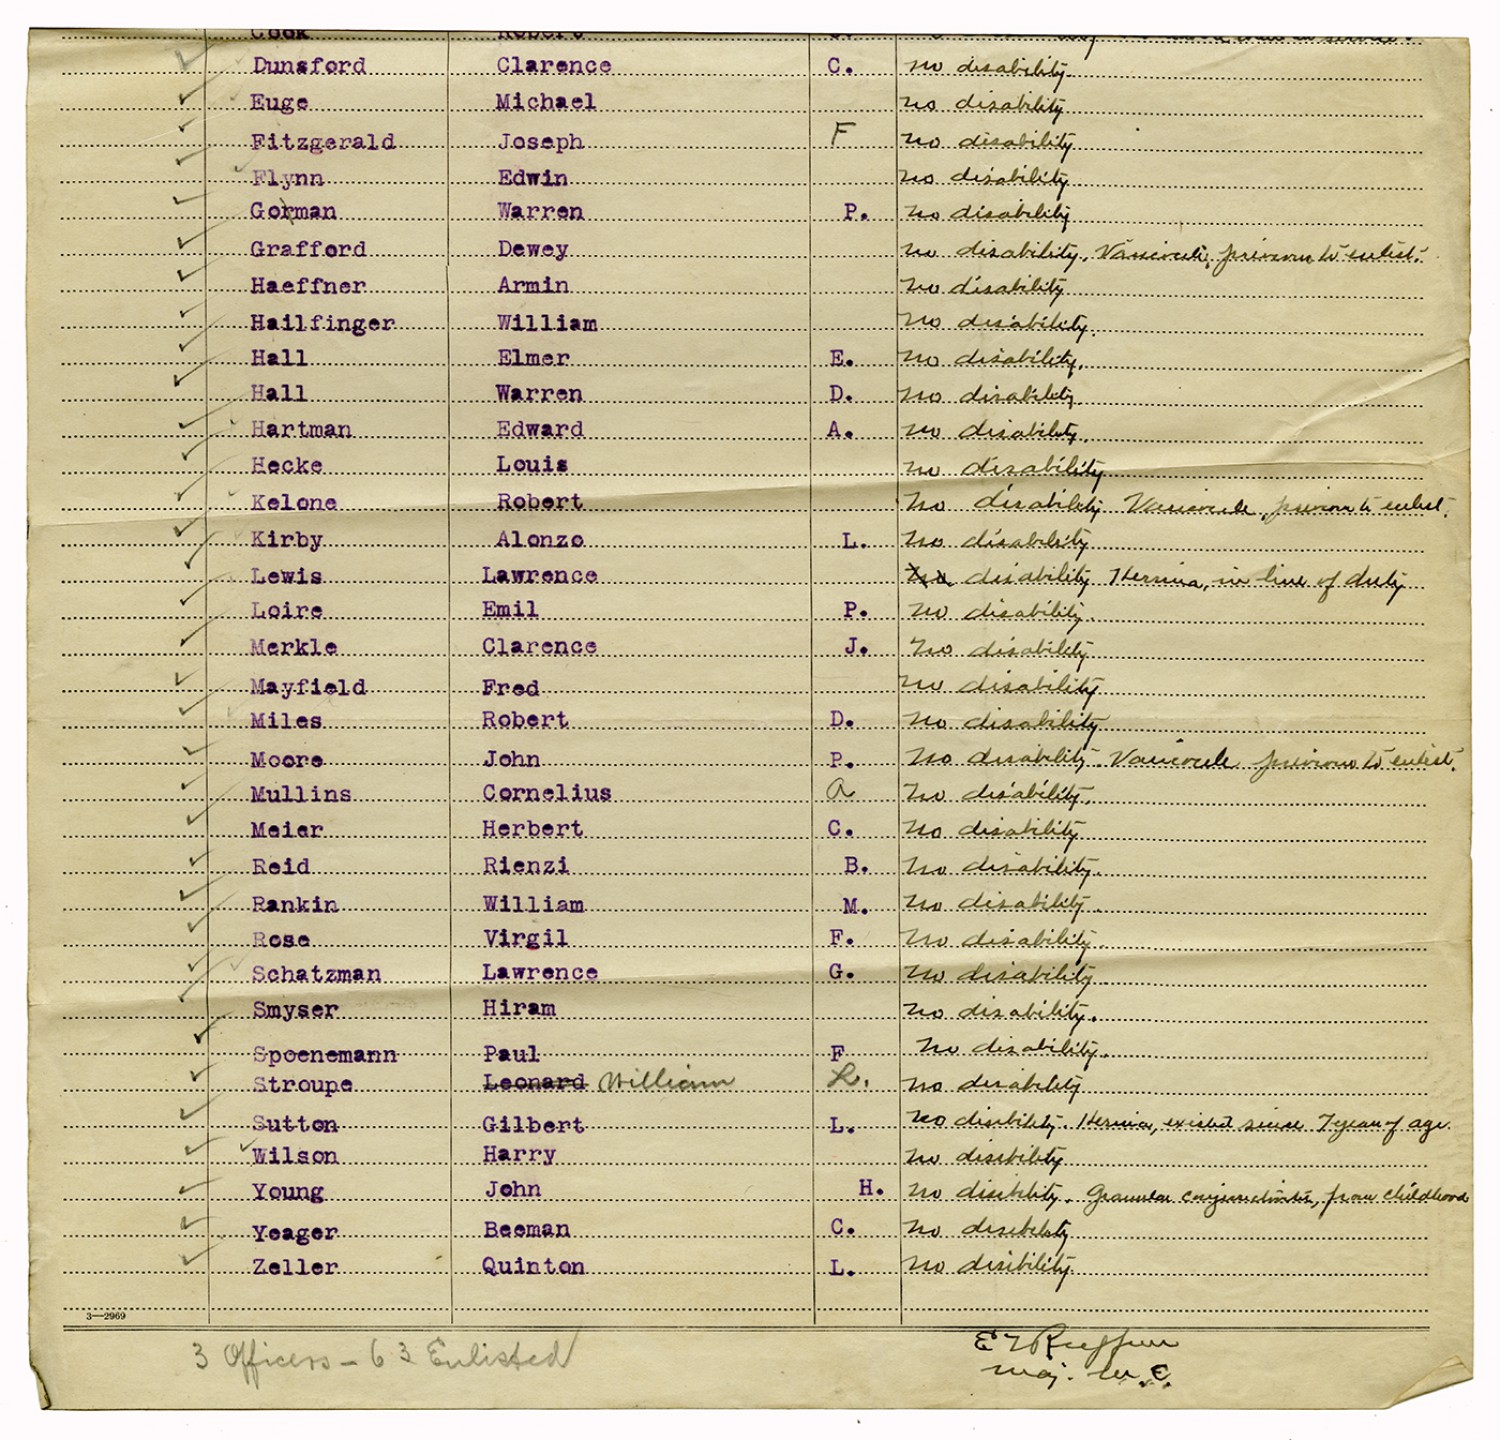 Cook Robert
Dunsford Clarence C. No disability.
Euge Michael No disability
Fitzgerald Joseph F No disability
Flynn Edwin No disability
Gorman Warren P. No disability
Grafford Dewey No disability. Varicocele, previous to enlist.
Haeffner Armin No disability
Hailfinger William No disability.
Hall Elmer E. No disability.
Hall Warren D. No disability.
Hartman Edward A. No disability.
Hecke Louis No disability
Kelone Robert No disability Varicocele, previous to enlist.
Kirby Alonzo L. No disability
Lewis Lawrence No disability Hernia, in line of duty
Loire Emil P. No disability.
Merkle Clarence J. No disability
Mayfield Fred No disability
Miles Robert D. No disability
Moore John P. No disability. Varicocele previous to enlist.
Mullins Cornelius A No disability.
Meier Herbert C. No disability
Reid Rienzi B. No disability.
Rankin William M. No disability.
Rose Virgil F. No disability.
Schatzman Lawrence G. No disability.
Smyser Hiram No disability.
Spoenemann Paul F No disability.
Stroupe Leonard William L. No disability
Sutton Gilbert L. No disibility. Hernia, existed since 7 year of age.
Wilson Harry No disibility
Young John H. No disibility. Granular conjunctivitis, from childhood
Yeager Beeman C. No disibility
Zeller Quinton L. No disibility.
3—2969
3 Officers - 63 Enlisted
E Ruffner
Maj. M.C.